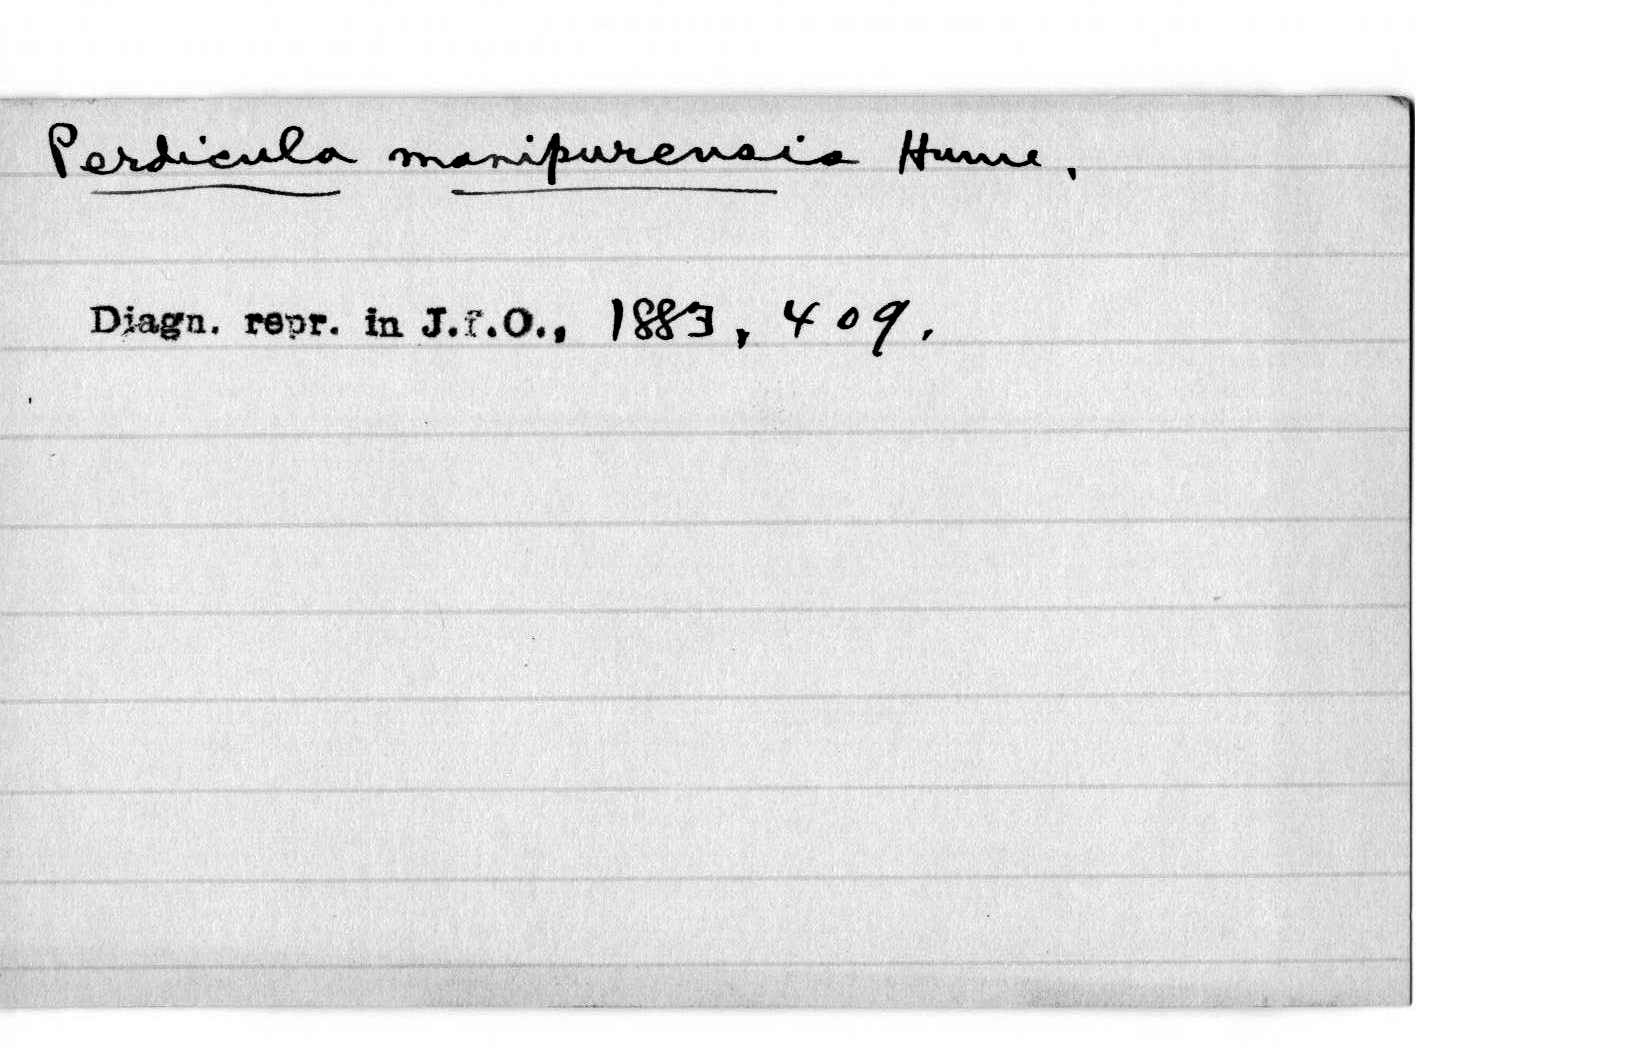 Perdicula manipurensis Hume.
Diagn. repr. in J.f.O., 1883, 409.